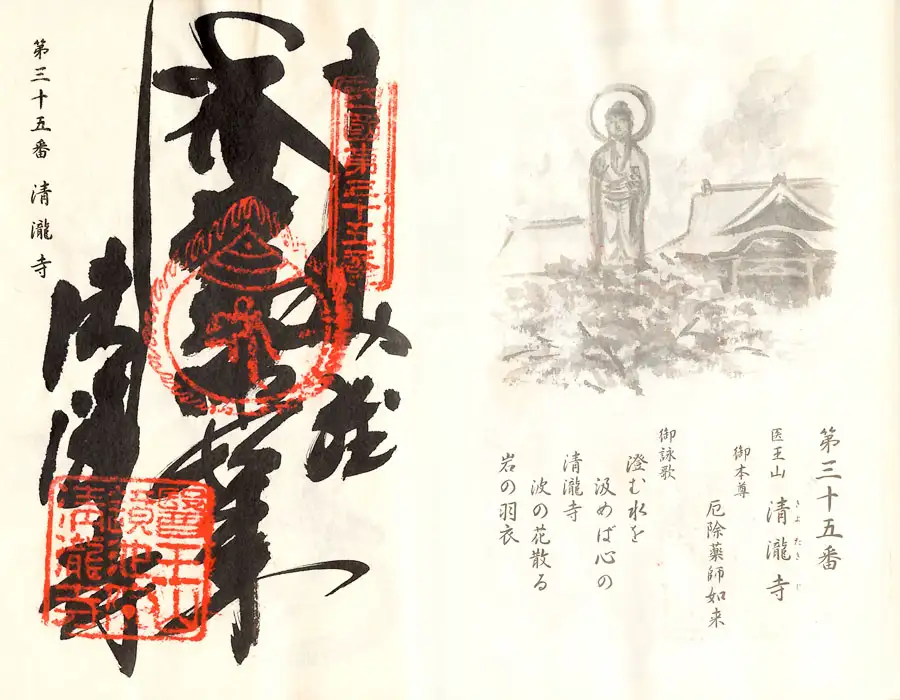 第三十五番
医王山 清瀧寺
きよたきじ
御本尊
厄除藥師如来
御詠歌
澄む水を
汲めば心の
清瀧寺
波の花散る
岩の羽衣
四國第三十五番
清瀧寺
醫王山
鏡池院
清瀧寺
第三十五番 清瀧寺